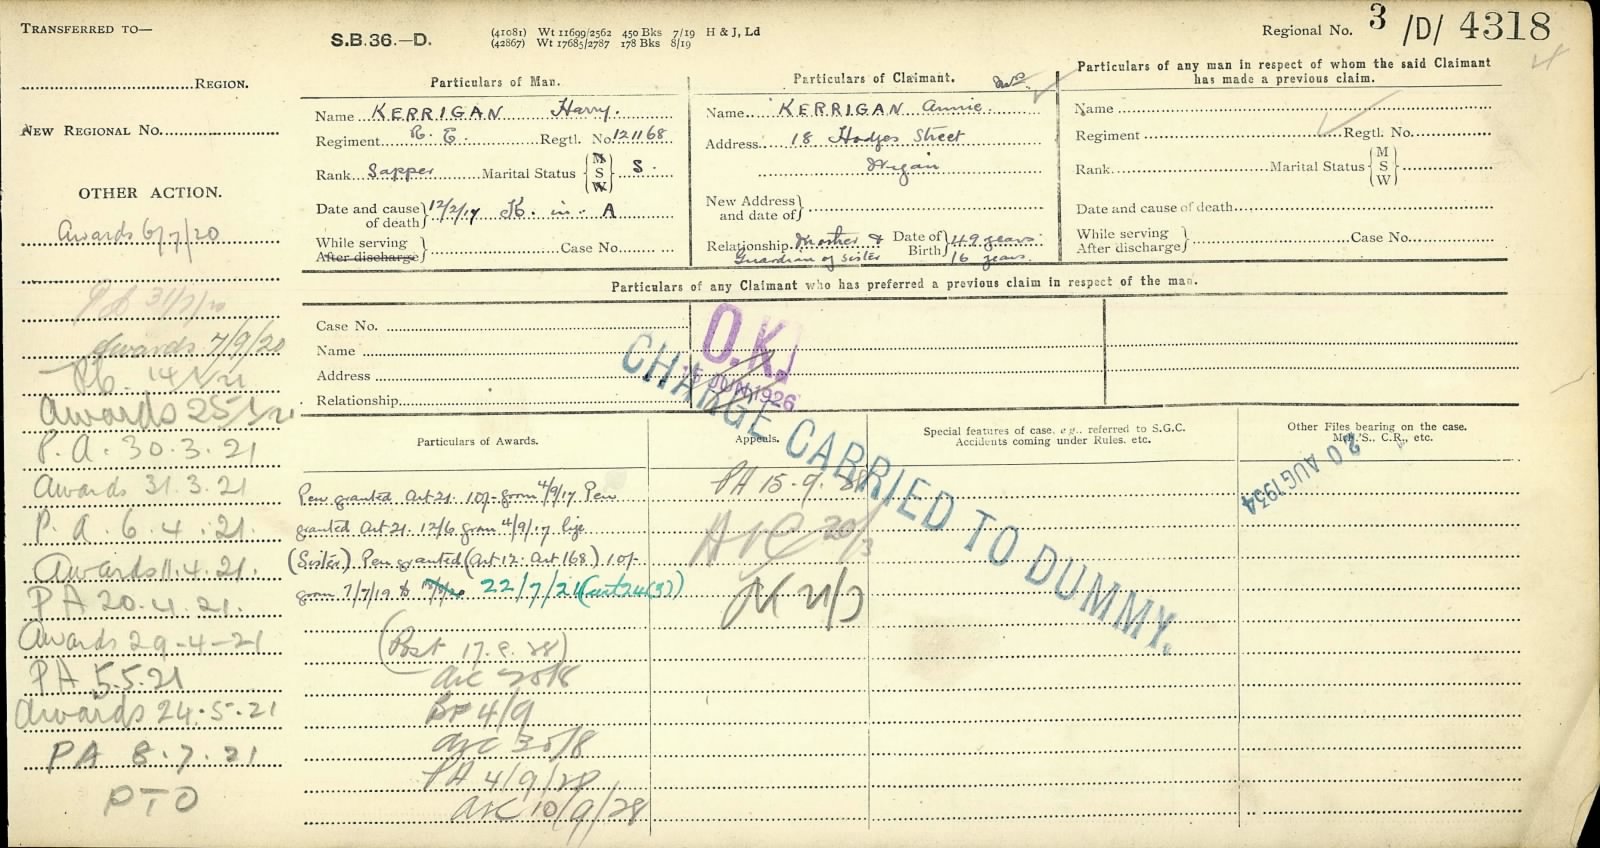 TRANSFERRED TO—
S.B.36.—D.
(41081) Wt 11699/2562 450 Bks 7/19 H & J, Ld
(42867) Wt 17685/2787 178 Bks 8/19
Regional No. 3 /D/ 4318
REGION.
NEW REGIONAL NO.
OTHER ACTION.
Awards 6/7/20
Awards 7/9/20
Awards 25/1/21
P.A. 30.3.21
Awards 31.3.21
P.A. 6.4.21.
Awards 11.4.21.
PA 20.4.21.
Awards 29-4-21
PA 5.5.21
Awards 24.5.21
PA 8.7.21
PTO
Particulars of Man.
Name KERRIGAN Harry.
Regiment R.E. Regtl. No. 121168
Rank Sapper Marital Status { M S W } S.
Date and cause of death } 12/2/17 K. in. A
While serving
After discharge } Case No.
Particulars of Claimant.
Name KERRIGAN Annie.
Address 18 Hodges Street
Wigan
New Address and date of }
Relationship Mother & Guardian of Sister
Date of Birth } 49 years 16 years.
Particulars of any man in respect of whom the said Claimant
has made a previous claim.
Name
Regiment Regtl. No.
Rank Marital Status { M S W }
Date and cause of death
While serving
After discharge } Case No.
Particulars of any Claimant who has preferred a previous claim in respect of the man.
Case No.
Name
Address
Relationship
O.K.
15 JUN 1926
CHARGE CARRIED TO DUMMY.
Particulars of Awards.
Pen granted Art 21. 10/- from 4/9/17 Pen
granted Art 21. 12/6 from 4/9/17 life
(Sister) Pen granted (Art 12. Art 168) 10/-
from 7/7/19 to 22/7/21 (Art 24(3))
(Post 17.8.28)
BF 4/9
arc 30/8
PA 4/9/28
arc 10/9/28
Appeals.
PA 15-9-28
20/3
Special features of case, e.g., referred to S.G.C.
Accidents coming under Rules. etc.
Other Files bearing on the case.
M.A.'S., C.R., etc.
20 AUG 1934